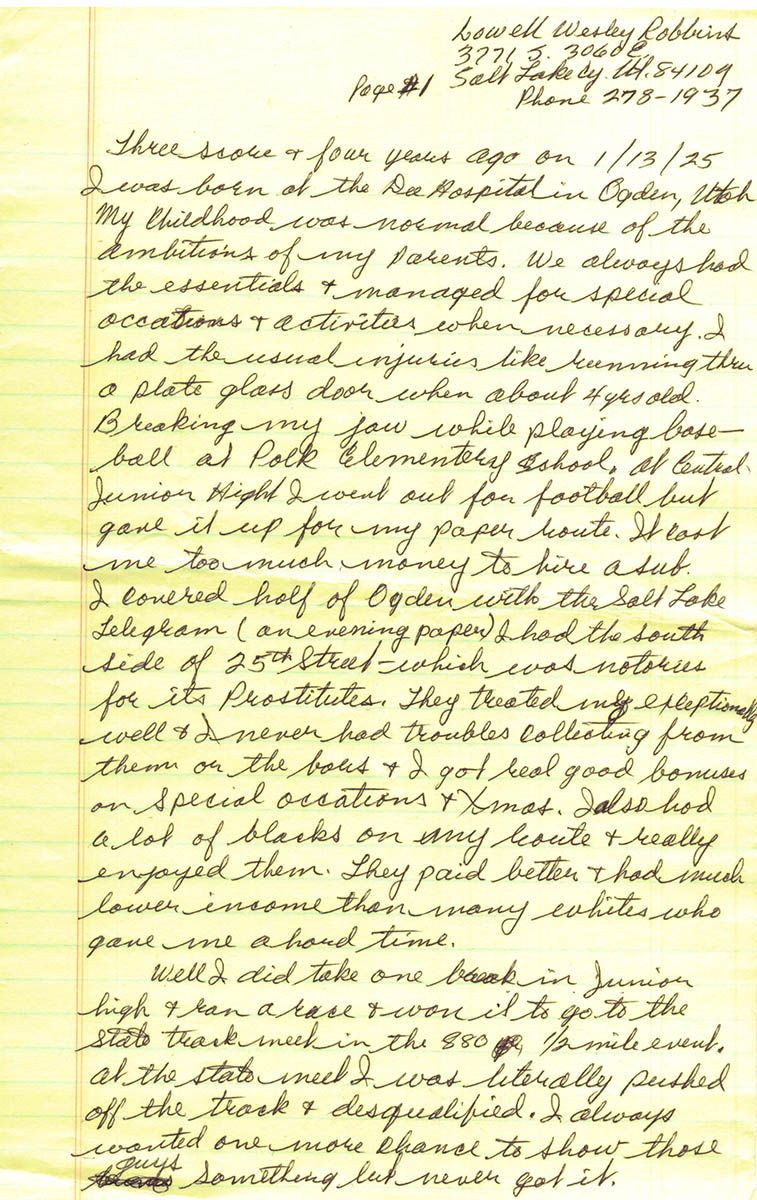 Lowell Wesley Robbins
3771 S. 3060 E.
Salt Lake Cy. Ut. 84109
Page #1
Phone 278-1937
Three score & four years ago on 1/13/25
I was born at the Dee Hospital in Ogden, Utah
My Childhood was normal because of the
ambitions of my Parents. We always had
the essentials & managed for special
occations & activities when necessary. I
had the usual injuries like running thru
a plate glass door when about 4 yrs old.
Breaking my jaw while playing base-
ball at Polk Elementery School. At Central
Junior Hight I went out for football but
gave it up for my paper route. It cost
me too much money to hire a sub.
I covered half of Ogden with the Salt Lake
Telegram (an evening paper) I had the south
side of 25th Street - which was notories
for its Prostitutes. They treated me exceptionally
well & I never had troubles collecting from
them or the bars & I got real good bonuses
on special occations & Xmas. I also had
a lot of blacks on my route & really
enjoyed them. They paid better & had much
lower income than many whites who
gave me a hard time.
Well I did take one break in Junior
high & ran a race & won it to go to the
state track meet in the 880 1/2 mile event.
At the state meet I was literally pushed
off the track & desqualified. I always
wanted one more chance to show those
guys something but never got it.